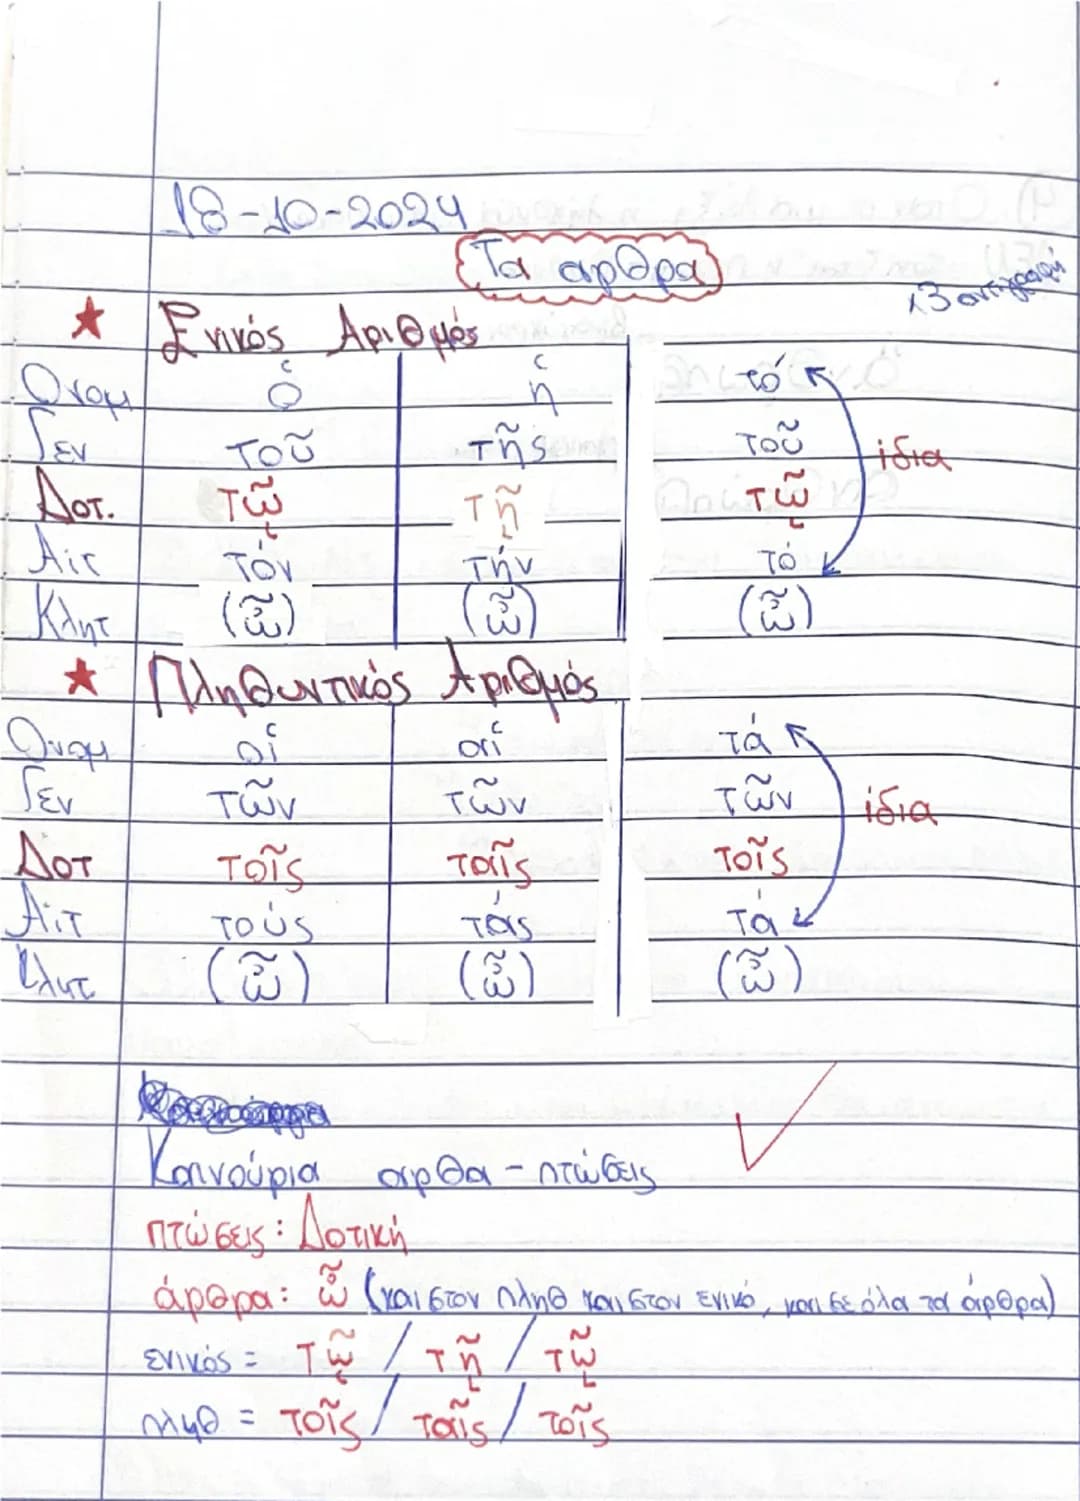 18-10-2024
Τα αρθρα
x3 αντιγραφή
Ενικός Αριθμός
Ονομ ὁ ἡ τό
Γεν τοῦ τῆς τοῦ ίδια
Δοτ. τῷ τῇ τῷ
Αιτ τόν τήν τό
Κλητ (ὦ) (ὦ) (ὦ)
Πληθυντικός Αριθμός
Ονομ οἱ αἱ τά
Γεν τῶν τῶν τῶν ίδια
Δοτ τοῖς ταῖς τοῖς
Αιτ τούς τάς τά
Κλητ (ὦ) (ὦ) (ὦ)
Καινούρια αρθα - πτώσεις
πτώσεις: Δοτική
άρθρα: ὦ (και στον πληθ και στον ενικό, και σε όλα τα άρθρα)
ενικός = τῷ / τῇ / τῷ
πληθ = τοῖς / ταῖς / τοῖς